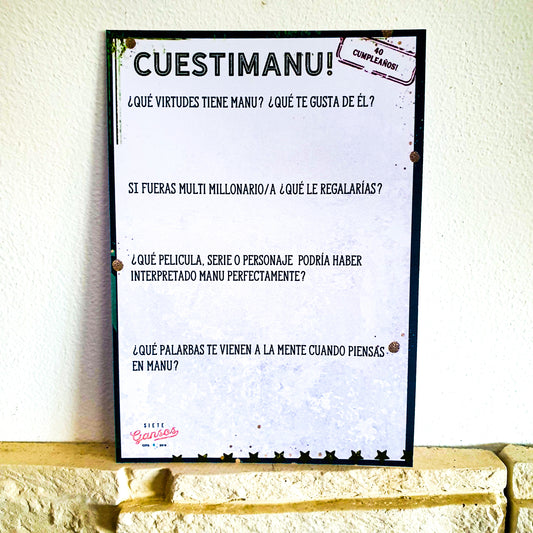 CUESTIMANU!
40
CUMPLEAÑOS!
¿QUÉ VIRTUDES TIENE MANU? ¿QUÉ TE GUSTA DE ÉL?
SI FUERAS MULTI MILLONARIO/A ¿QUÉ LE REGALARÍAS?
¿QUÉ PELICULA, SERIE O PERSONAJE PODRÍA HABER
INTERPRETADO MANU PERFECTAMENTE?
¿QUÉ PALARBAS TE VIENEN A LA MENTE CUANDO PIENSAS
EN MANU?
SIETE
Gansos